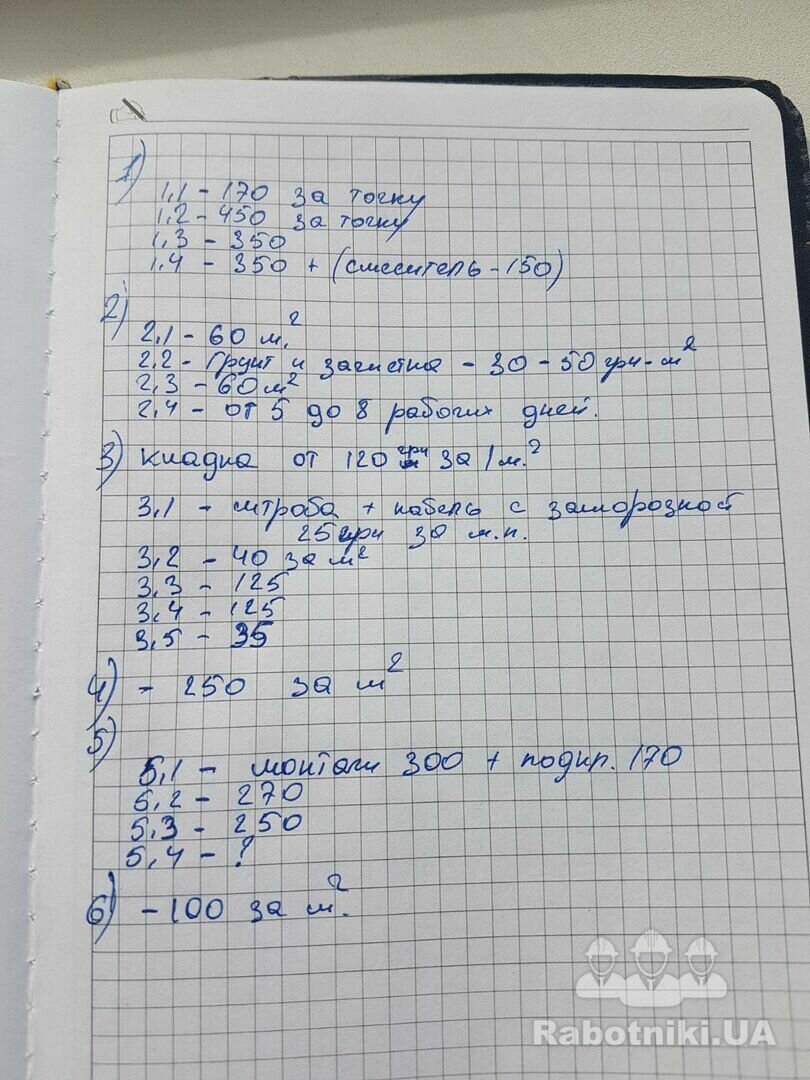 1)
1,1 - 170 за точку
1,2 - 450 за точку
1,3 - 350
1,4 - 350 + (смеситель - 150)
2)
2,1 - 60 м.²
2,2 - Грунт и зачистка - 30 - 50 грн - м²
2,3 - 60 м²
2,4 - от 5 до 8 рабочих дней.
3) кладка от 120 грн за 1 м.²
3,1 - штроба + кабель с заморозкой
25 грн за м.п.
3,2 - 40 за м²
3,3 - 125
3,4 - 125
3,5 - 35
4) - 250 за м²
5)
5,1 - монтаж 300 + подкр. 170
5,2 - 270
5,3 - 250
5,4 - ?
6) - 100 за м².
Rabotniki.UA